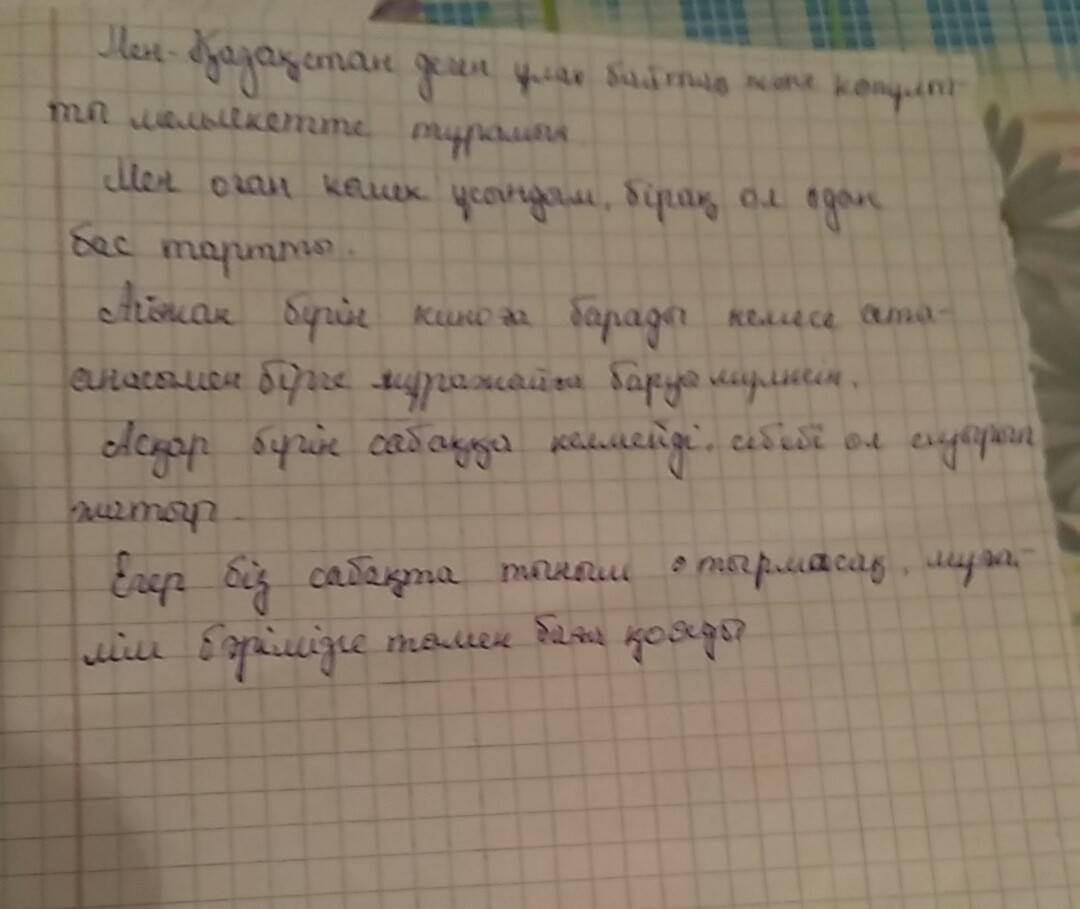 Мен - Қазақстан деген ұлан байтақ және көпұлт-
ты мемлекетте тұрамын
Мен оған көмек ұсындам, бірақ ол одан
бас тартты.
Айжан бүгін киноға барады немесе ата-
анасымен бірге мұражайға баруы мүмкін.
Асқар бүгін сабаққа келмейді, себебі ол ауырып
жатыр.
Егер біз сабақта тыныш отырмасақ, мұға-
лім бәрімізге төмен баға қояды